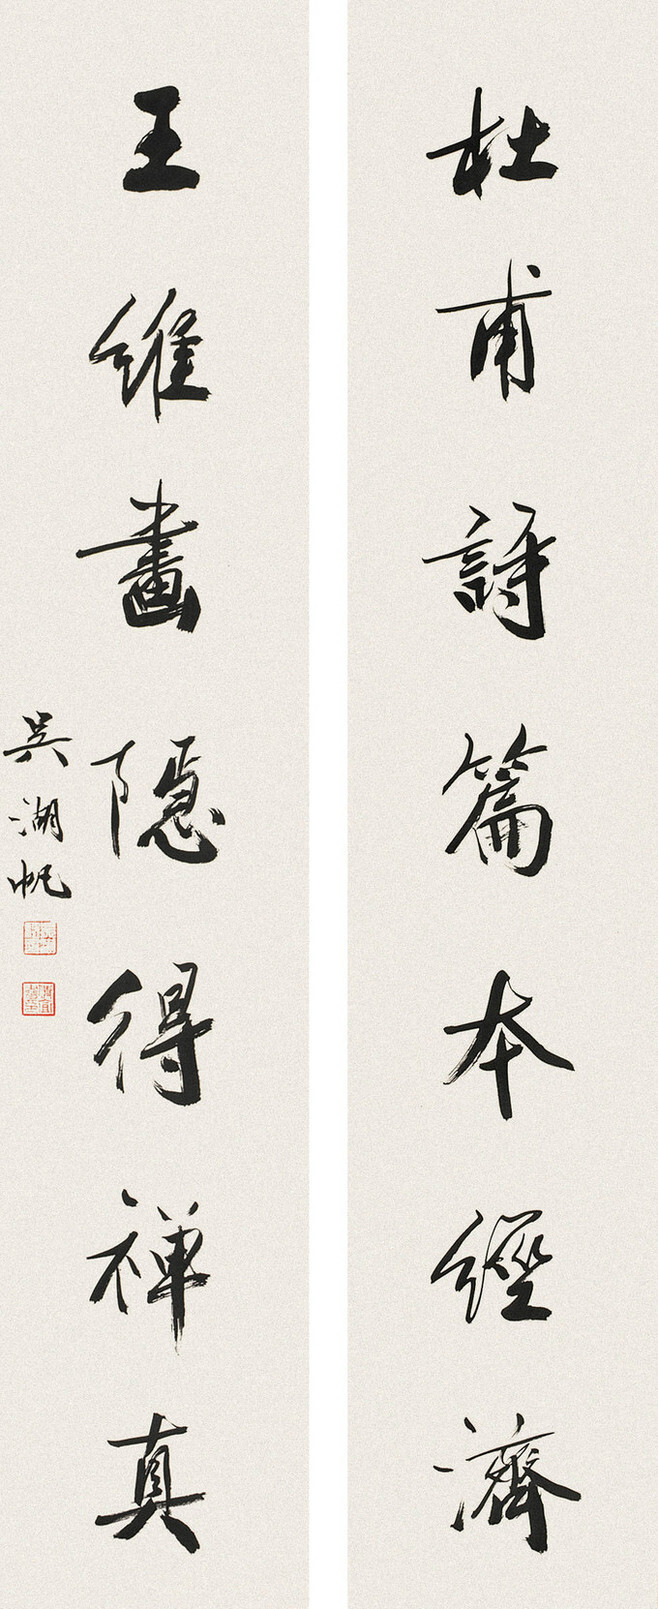 杜甫詩篇本經濟
王維畫隱得禅真
吴湖帆